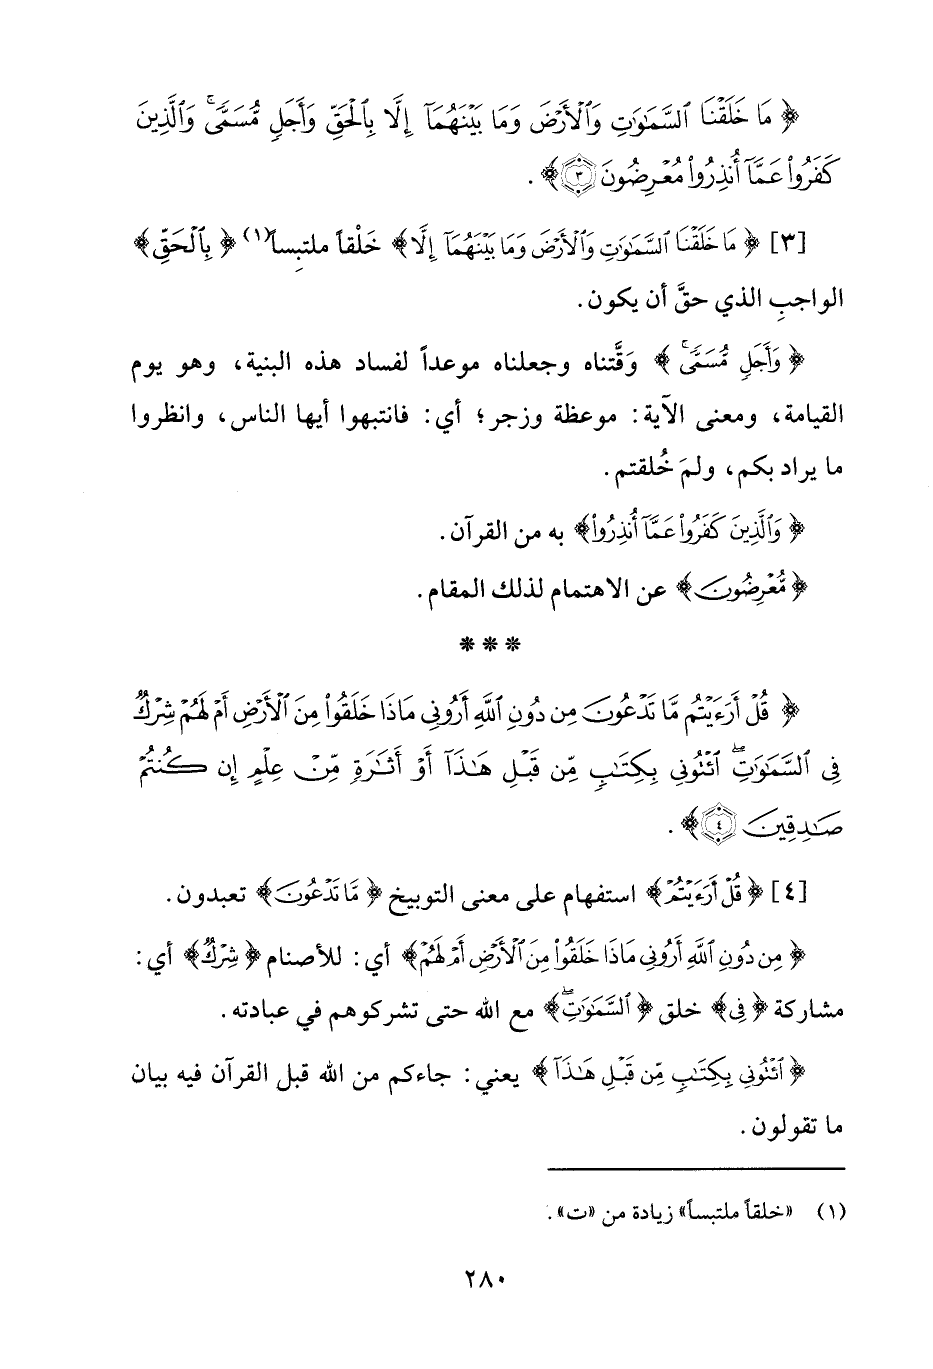 ﴿ مَا خَلَقْنَا ٱلسَّمَٰوَٰتِ وَٱلْأَرْضَ وَمَا بَيْنَهُمَآ إِلَّا بِٱلْحَقِّ وَأَجَلٍ مُّسَمًّىۚ وَٱلَّذِينَ
كَفَرُوا۟ عَمَّآ أُنذِرُوا۟ مُعْرِضُونَ ٣ ﴾ .
[٣] ﴿ مَا خَلَقْنَا ٱلسَّمَٰوَٰتِ وَٱلْأَرْضَ وَمَا بَيْنَهُمَآ إِلَّا﴾ خَلْقاً ملتبِساً(١) ﴿ بِٱلْحَقِّ ﴾
الواجبِ الذي حقَّ أن يكون.
﴿ وَأَجَلٍ مُّسَمًّىۚ ﴾ وَقَّتناه وجعلناه موعداً لفساد هذه البنية، وهو يوم
القيامة، ومعنى الآية: موعظة وزجر؛ أي: فانتبهوا أيها الناس، وانظروا
ما يراد بكم، ولمَ خُلقتم.
﴿ وَٱلَّذِينَ كَفَرُوا۟ عَمَّآ أُنذِرُوا۟﴾ به من القرآن.
﴿مُّعْرِضُونَ﴾ عن الاهتمام لذلك المقام.
* * *
﴿ قُلْ أَرَءَيْتُم مَّا تَدْعُونَ مِن دُونِ ٱللَّهِ أَرُونِى مَاذَا خَلَقُوا۟ مِنَ ٱلْأَرْضِ أَمْ لَهُمْ شِرْكٌ
فِى ٱلسَّمَٰوَٰتِۖ ٱئْتُونِى بِكِتَٰبٍ مِّن قَبْلِ هَٰذَآ أَوْ أَثَٰرَةٍ مِّنْ عِلْمٍ إِن كُنتُمْ
صَٰدِقِينَ ٤ ﴾ .
[٤] ﴿قُلْ أَرَءَيْتُمْ﴾ استفهام على معنى التوبيخ ﴿مَّا تَدْعُونَ﴾ تعبدون.
﴿ مِن دُونِ ٱللَّهِ أَرُونِى مَاذَا خَلَقُوا۟ مِنَ ٱلْأَرْضِ أَمْ لَهُمْ﴾ أي: للأصنام ﴿شِرْكٌ﴾ أي:
مشاركة ﴿فِى﴾ خلق ﴿ٱلسَّمَٰوَٰتِۖ﴾ مع الله حتى تشركوهم في عبادته.
﴿ ٱئْتُونِى بِكِتَٰبٍ مِّن قَبْلِ هَٰذَآ ﴾ يعني: جاءكم من الله قبل القرآن فيه بيان
ما تقولون.
(١) «خلقاً ملتبساً» زيادة من «ت».
٢٨٠